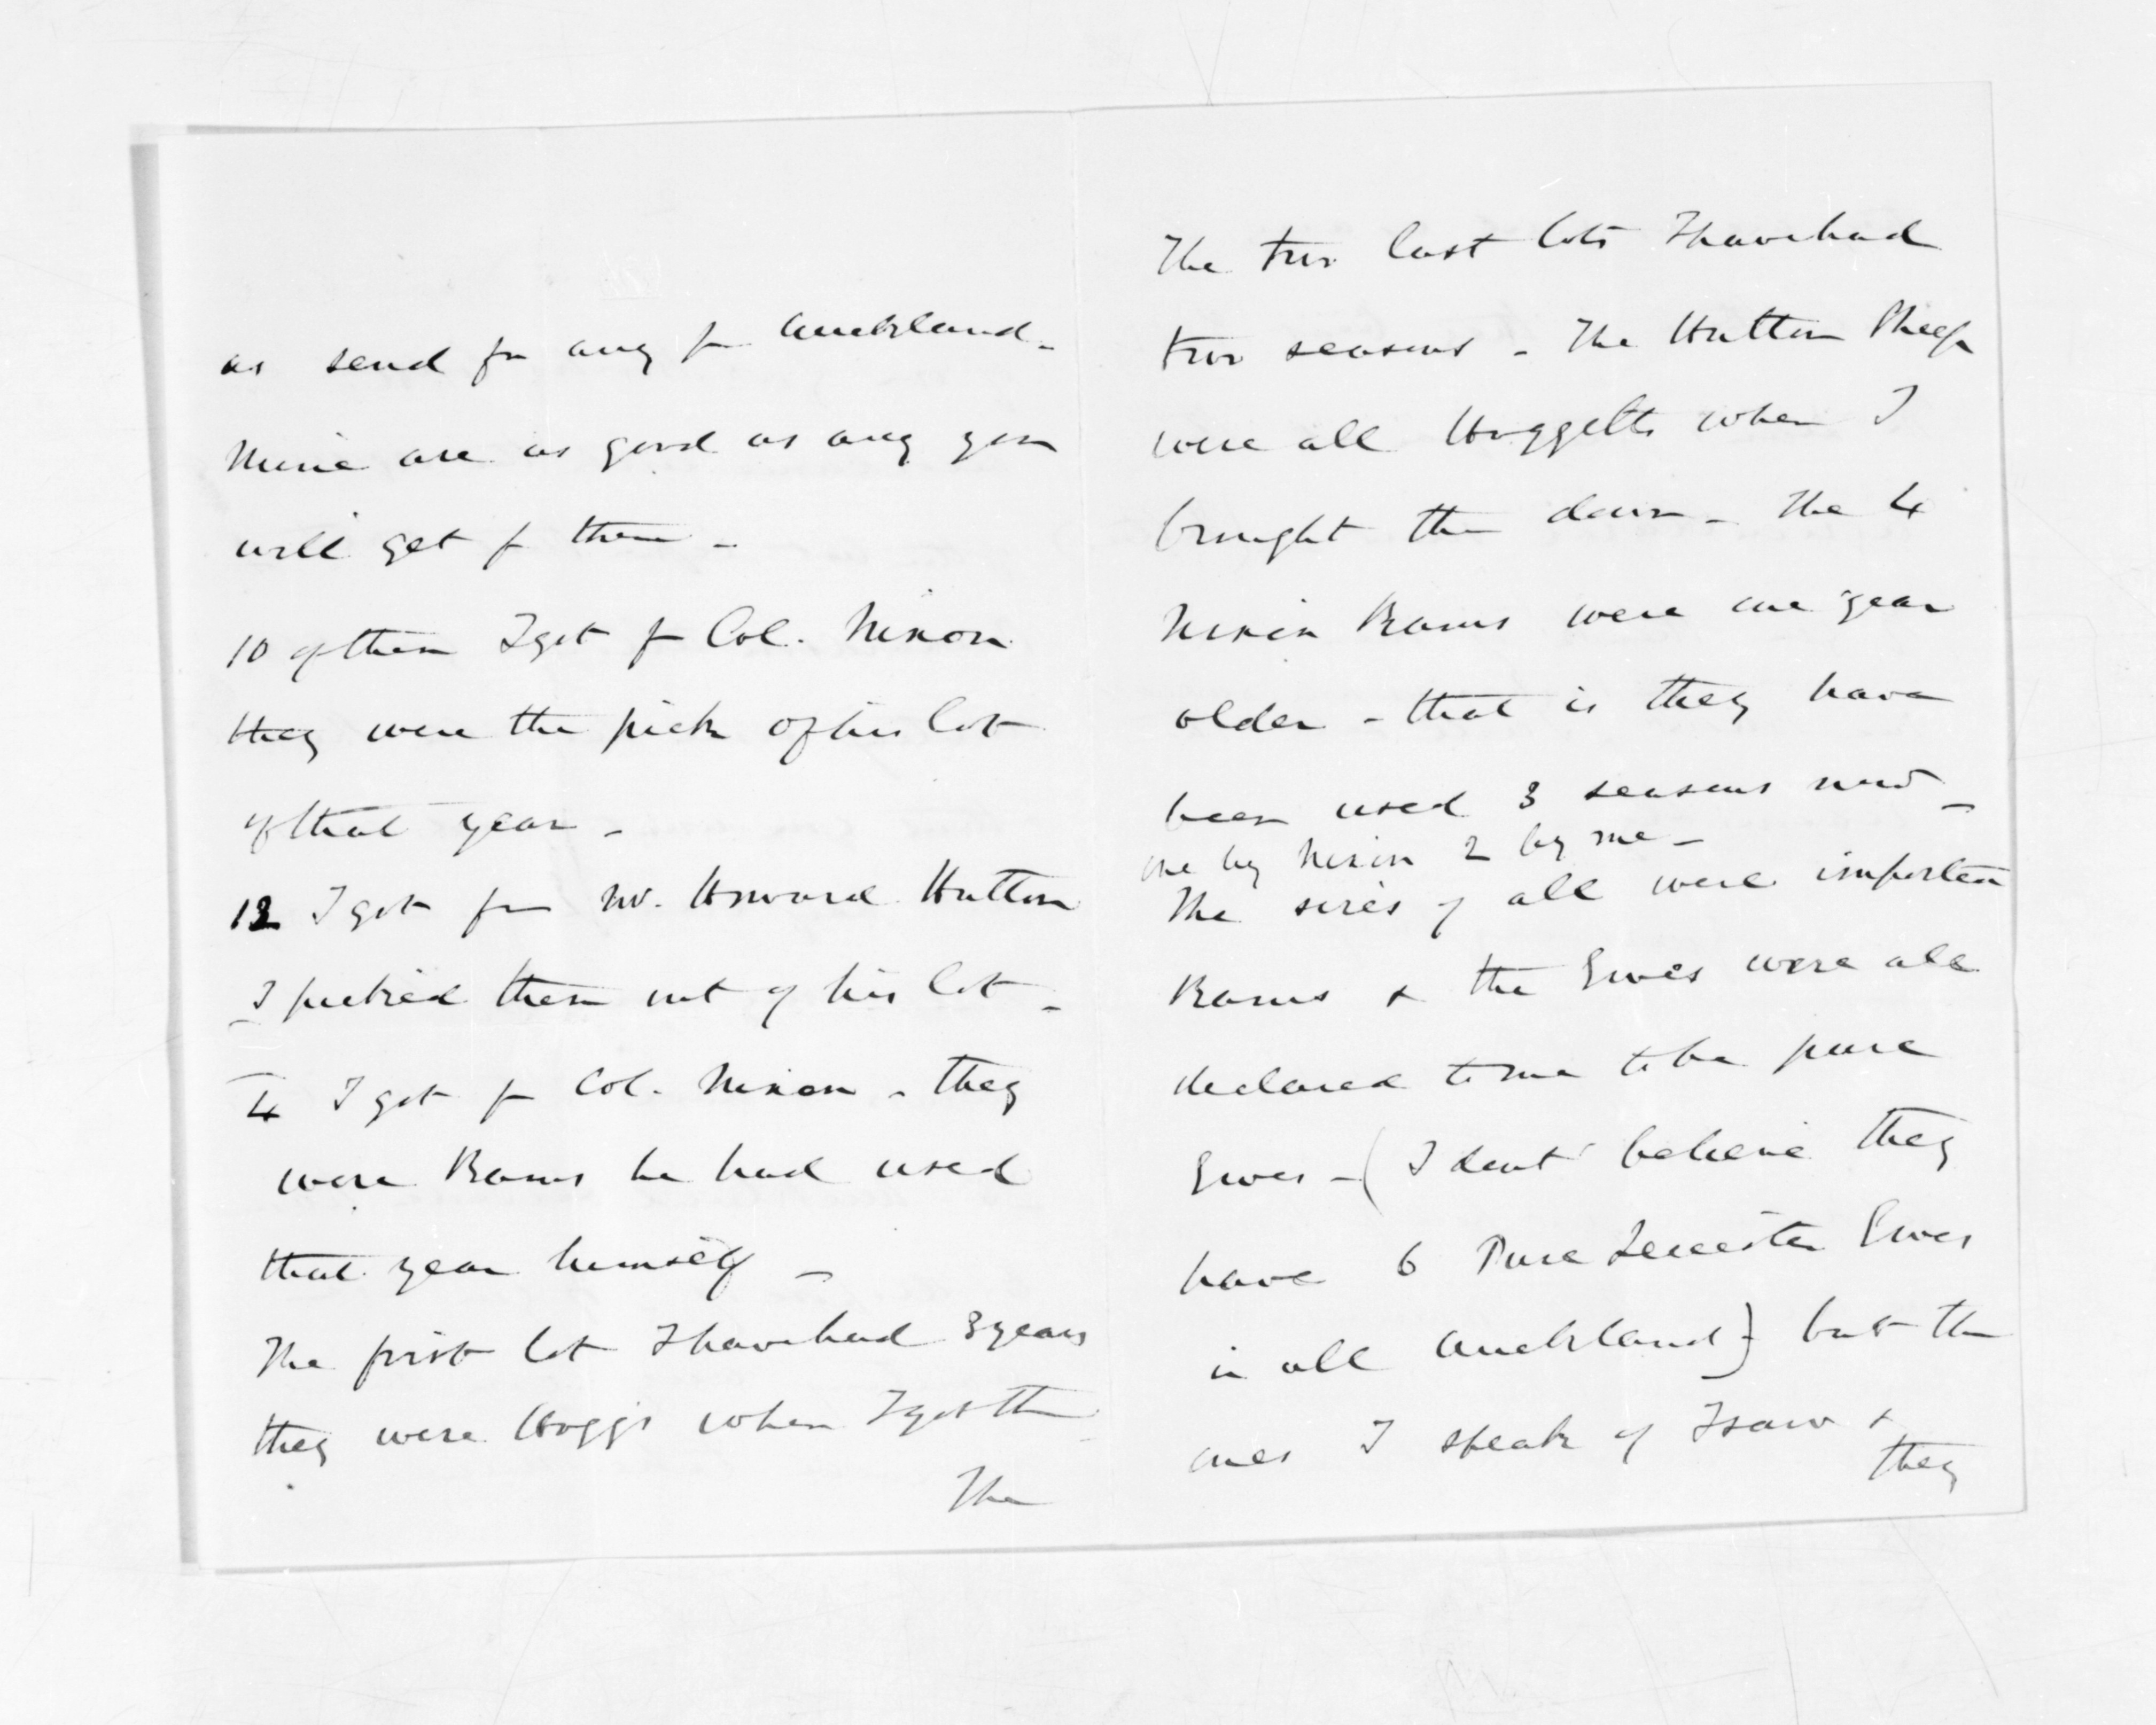 as send for any fm Auckland -
Mine are as good as any you
will get fm there -
10 of them I got fm Col. Nixon
they were the pick of his lot
of that year -
12 I got fm Mr. Howard Hutton
I picked them out of his lot -
4 I got fm Col. Nixon - they
were Rams he had used
that year himself -
The first lot I have had 3 years
they were Hoggs when I got them
The
The two last lots I have had
two seasons - The Hutton Sheep
were all Hoggetts when I
brought them down - The 4
Nixon Rams were one year
older - that is they have
been used 3 seasons now -
one by Nixon 2 by me -
The sires of all were imported
Rams & the Ewes were all
declared to me to be pure
Ewes - (I dont believe they
have 6 Pure Leicester Ewes
in all Auckland) but the
ones I speak of I saw &
they